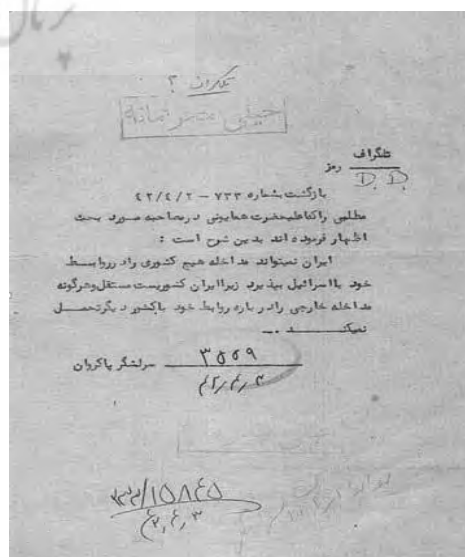 تلگراف ؟
خیلی محرمانه
تلگراف رمز
D. D.
بازگشت بشماره ۷۳۳ – ۴۲/۴/۲
مطلبی راکه اعلیحضرت همایونی درمصاحبه مورد بحث
اظهار فرموده اند بدین شرح است :
ایران نمیتواند مداخله هیچ کشوری رادرروابط
خود بااسرائیل بپذیرد زیراایران کشوریست مستقل وهرگونه
مداخله خارجی رادرباره روابط خود باکشور دیگرتحمل
نمیکند .–
سرلشگر پاکروان
۳۵۵۹
۴۲/۴/۳
۳۳۲/۱۵۸۴۵
۴۲,۴,۳